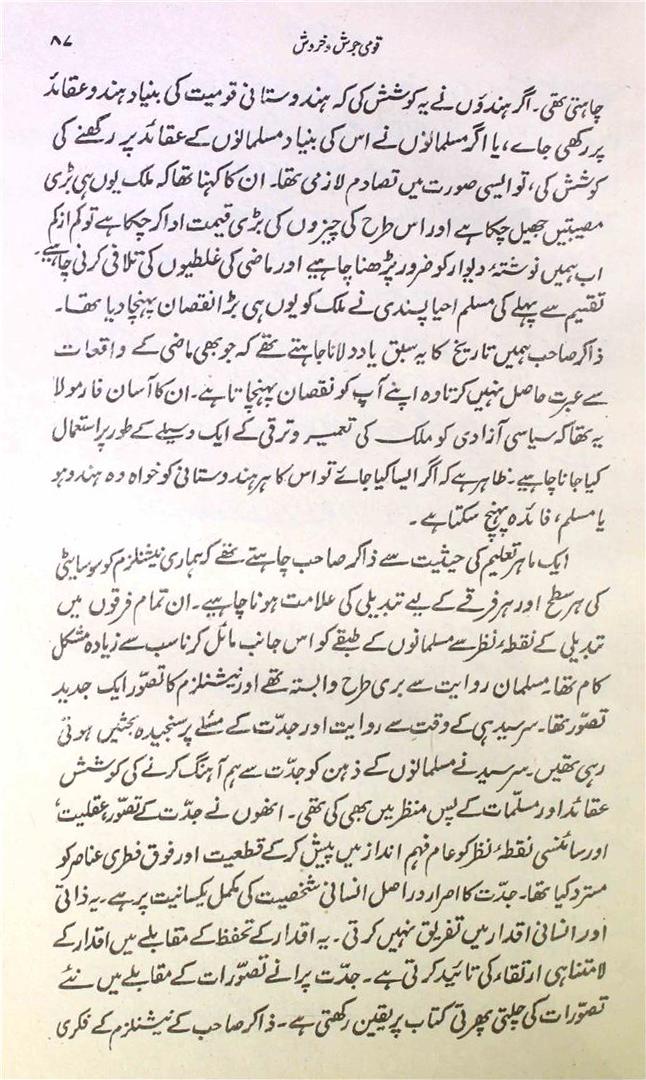 قومی جوش و خروش ۸۷
چاہتی تھی۔ اگر ہندوؤں نے یہ کوشش کی کہ ہندوستانی قومیت کی بنیاد ہندو عقائد
پر رکھی جاے، یا اگر مسلمانوں نے اس کی بنیاد مسلمانوں کے عقائد پر رکھنے کی
کوشش کی، تو ایسی صورت میں تصادم لازمی تھا۔ ان کا کہنا تھا کہ ملک یوں ہی بڑی
مصیبتیں جھیل چکا ہے اور اس طرح کی چیزوں کی بڑی قیمت ادا کر چکا ہے تو کم از کم
اب ہمیں نوشتۂ دیوار کو ضرور پڑھنا چاہیے اور ماضی کی غلطیوں کی تلافی کرنی چاہیے۔
تقیم سے پہلے کی مسلم احیا پسندی نے ملک کو یوں ہی بڑا نقصان پہنچا دیا تھا۔
ذاکر صاحب ہمیں تاریخ کا یہ سبق یاد دلانا چاہتے تھے کہ جو بھی ماضی کے واقعات
سے عبرت حاصل نہیں کرتا وہ اپنے آپ کو نقصان پہنچاتا ہے۔ ان کا آسان فارمولا
یہ تھا کہ سیاسی آزادی کو ملک کی تعمیر و ترقی کے ایک وسیلے کے طور پر استعمال
کیا جانا چاہیے۔ ظاہر ہے کہ اگر ایسا کیا جائے تو اس کا ہر ہندوستانی کو خواہ وہ ہندو ہو
یا مسلم، فائدہ پہنچ سکتا ہے۔
ایک ماہر تعلیم کی حیثیت سے ذاکر صاحب چاہتے تھے کہ ہماری نیشنلزم کو سوسائٹی
کی ہر سطح اور ہر فرقے کے لیے تبدیلی کی علامت ہونا چاہیے۔ ان تمام فرقوں میں
تبدیلی کے نقطۂ نظر سے مسلمانوں کے طبقے کو اس جانب مائل کرنا سب سے زیادہ مشکل
کام تھا۔ مسلمان روایت سے بری طرح وابستہ تھے اور نیشنلزم کا تصوّر ایک جدید
تصوّر تھا۔ سرسید ہی کے وقت سے روایت اور جدّت کے مسئلے پر سنجیدہ بحثیں ہوتی
رہی تھیں۔ سرسید نے مسلمانوں کے ذہن کو جدّت سے ہم آہنگ کرنے کی کوشش
عقائد اور مسلّمات کے پس منظر میں بھی کی تھی۔ انھوں نے جدّت کے تصوّر، عقلیت،
اور سائنسی نقطۂ نظر کو عام فہم انداز میں پیش کر کے قطعیت اور فوق فطری عناصر کو
مسترد کیا تھا۔ جدّت کا اصرار دراصل انسانی شخصیت کی مکمل یکسانیت پر ہے۔ یہ ذاتی
اور انسانی اقدار میں تفریق نہیں کرتی۔ یہ اقدار کے تحفظ کے مقابلے میں اقدار کے
لامتناہی ارتقاء کی تائید کرتی ہے۔ جدّت پرانے تصوّرات کے مقابلے میں نئے
تصوّرات کی چلتی پھرتی کتاب پر یقین رکھتی ہے۔ ذاکر صاحب کے نیشنلزم کے فکری